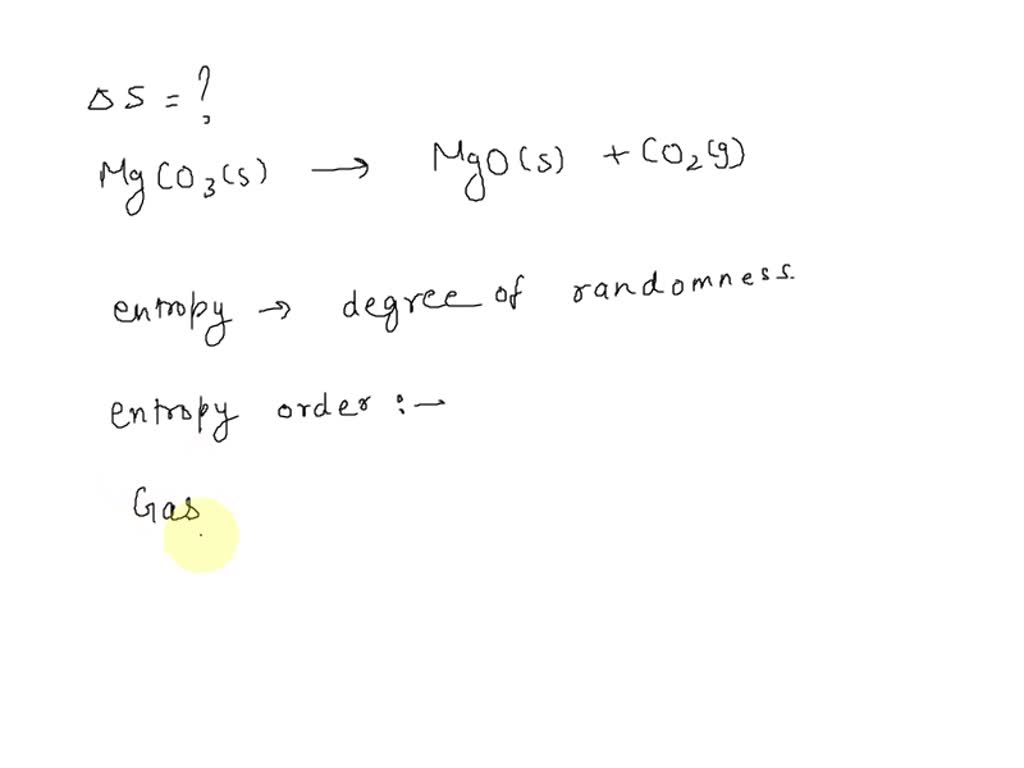 ΔS = ?
MgCO₃(s) → MgO(s) + CO₂(g)
entropy → degree of randomness.
entropy order :-
Gas